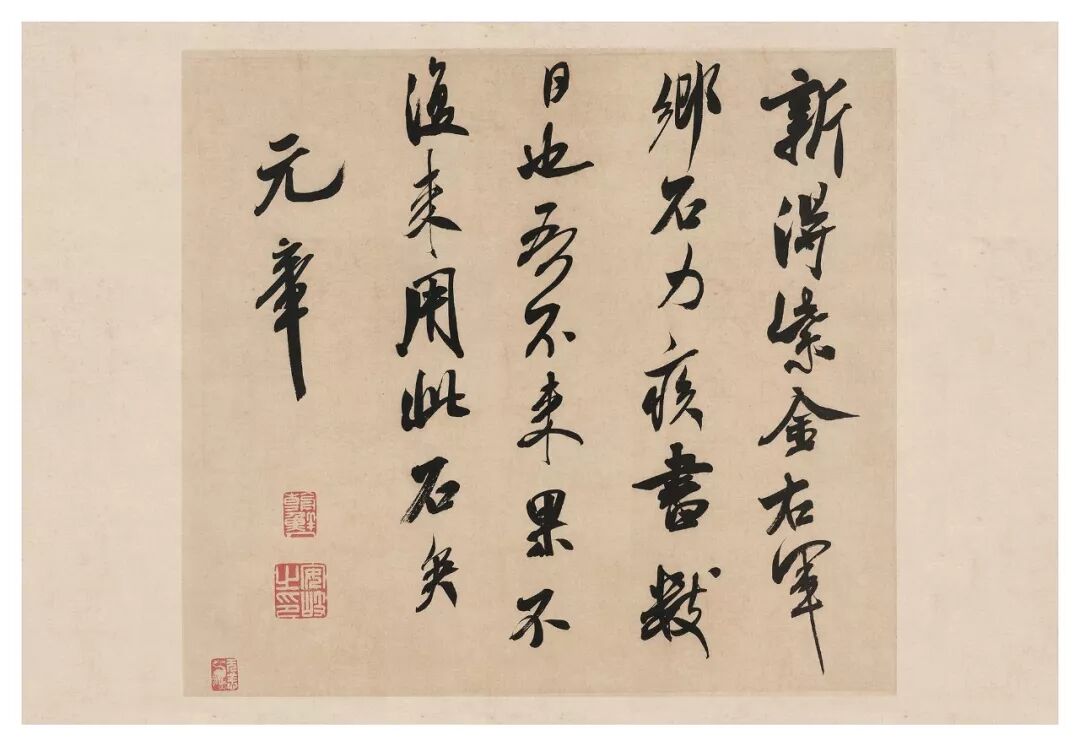 新得紫金右軍
鄉石力疾書數
日也吾不來果不
復來用此石矣
元章
安岐之印